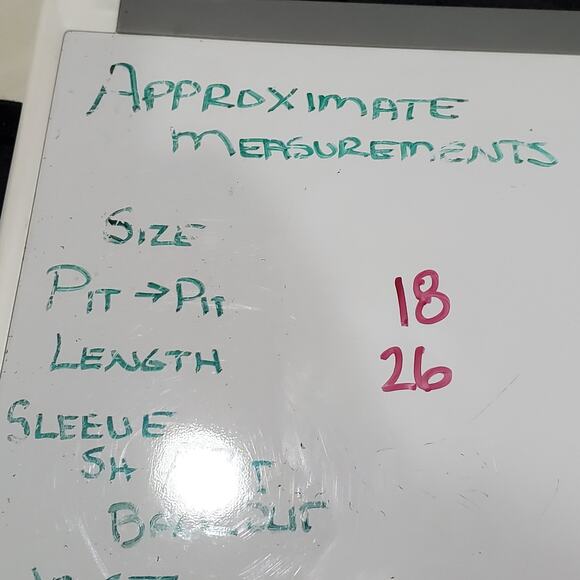 APPROXIMATE
MEASUREMENTS
SIZE
PIT → PIT 18
LENGTH 26
SLEEVE